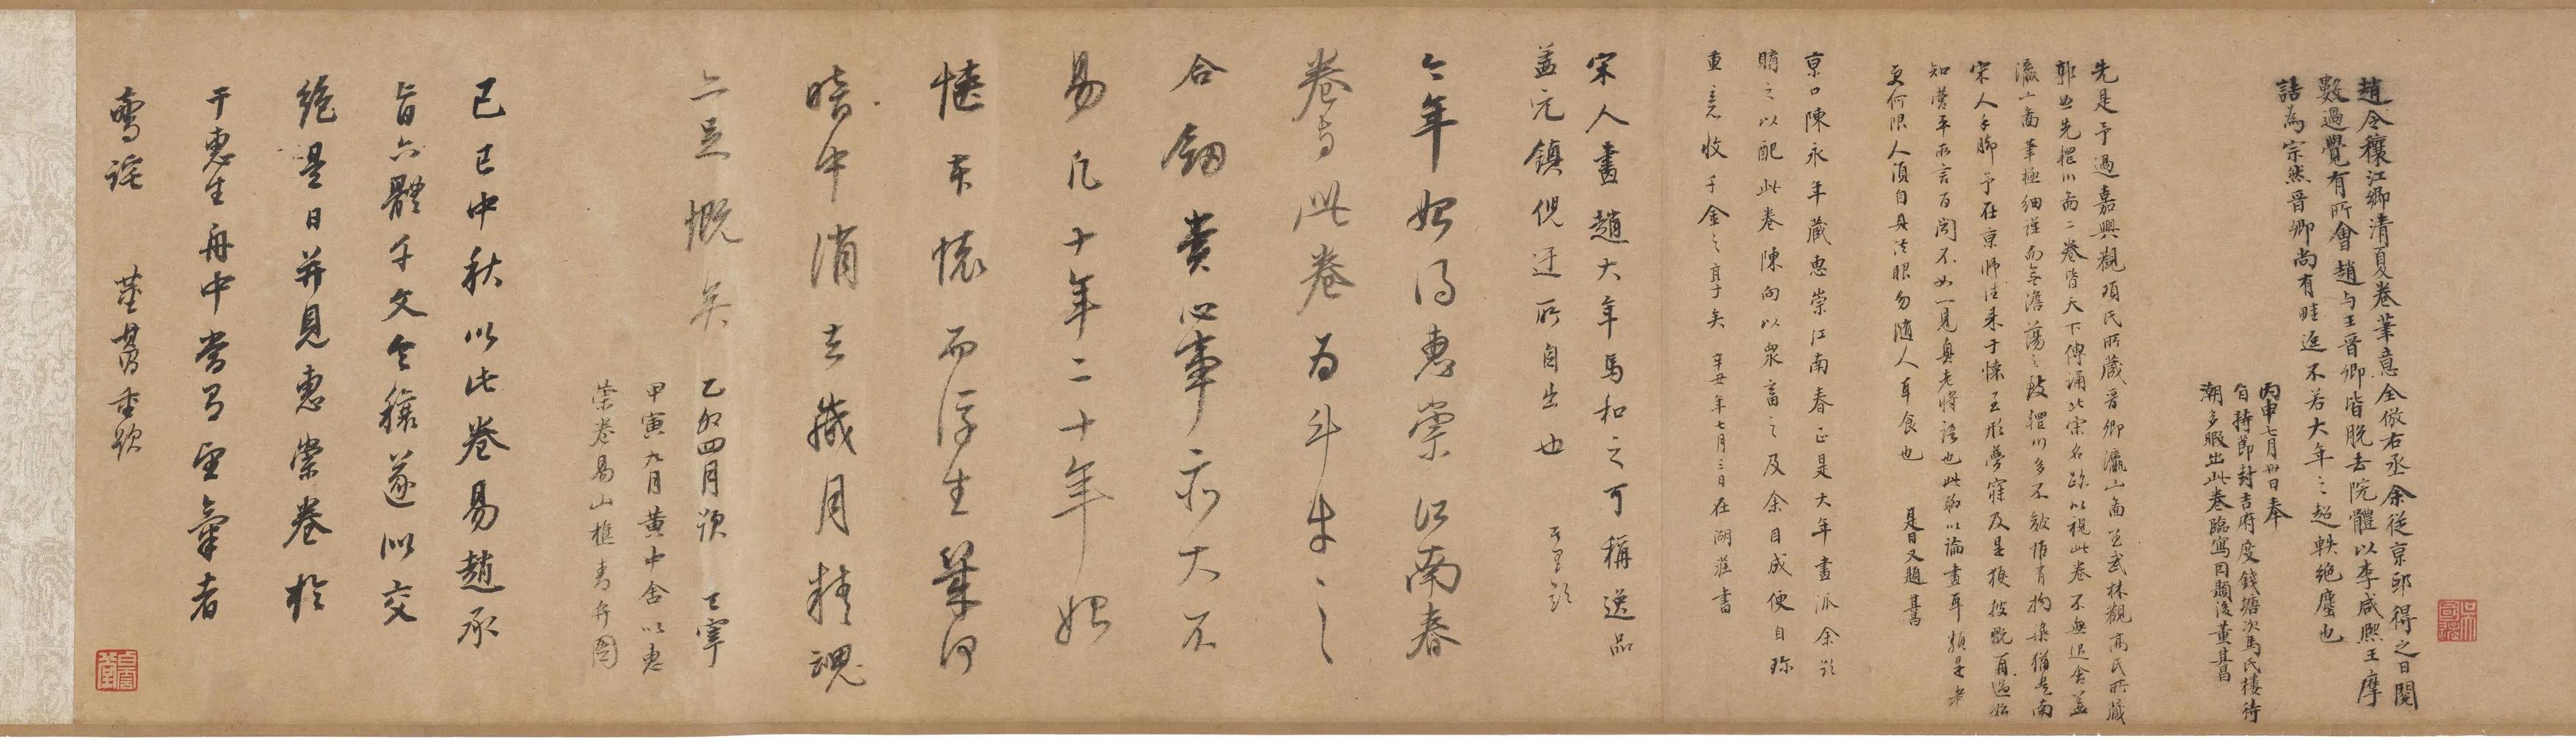 趙令穰江鄉清夏卷筆意全倣右丞余從京邸得之日閱
數過覺有所會趙与王晉卿皆脫去院體以李咸熙王摩
詰為宗然晉卿尚有畦逕不若大年之超軼絶塵也
丙申七月卅日奉
旨持節封吉府度錢塘次馬氏樓待
潮多暇出此卷臨寫因題後董其昌
先是予過嘉興觀項氏所藏晉卿瀛山圖至武林觀高氏所藏
郭忠先輞川圖二卷皆天下傳誦北宋名跡以視此卷不無退舍蓋
瀛山圖筆極細謹而無澹蕩之致輞川多不皴惟有拘染猶是南
宋人手腳予在京師往來于懷至形夢寐及是披翫有過
知營平所言百聞不如一見真老將語也此論畫耳類是者
更何限人須自具法眼勿隨人耳食也 是日又題 其昌
京口陳永年藏惠崇江南春正是大年畫派余欲
購之以配此卷陳向以衆畜之及余目成便自珍
重意收千金之享矣 辛丑年七月三日在湖莊書
宋人畫趙大年馬和之可稱逸品
蓋元鎮倪迂所自出也 玄宰跋
今年始得惠崇江南春
卷与此卷為斗牛之
合劍賞心事亦大不
易凡十年二十年始
愜本懷而浮生筭何
暗中消去歲月精魂
亦足慨矣 乙卯四月跋 玄宰
甲寅九月黃中舍以惠
崇卷易山樵青弁圖
己巳中秋以此卷易趙承
旨六體千文令穰遂似交
絕是日并見惠崇卷於
于惠生舟中當有望氣者